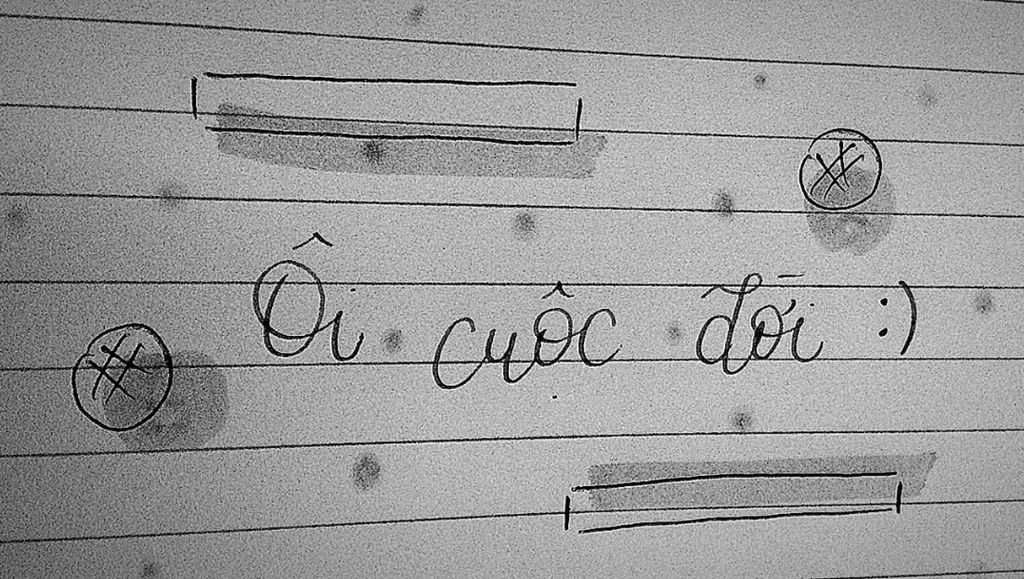 Ôi cuộc đời :)